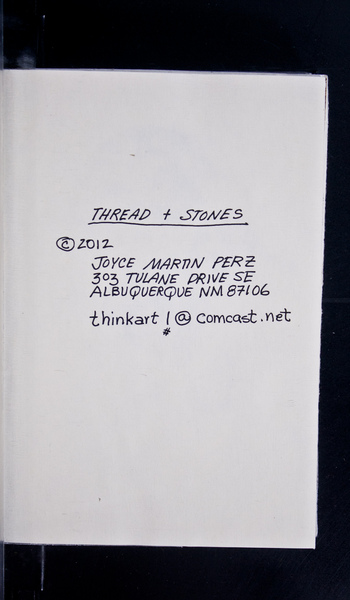 THREAD + STONES
© 2012
JOYCE MARTIN PERZ
303 TULANE DRIVE SE
ALBUQUERQUE NM 87106
thinkart 1 @ comcast.net
#